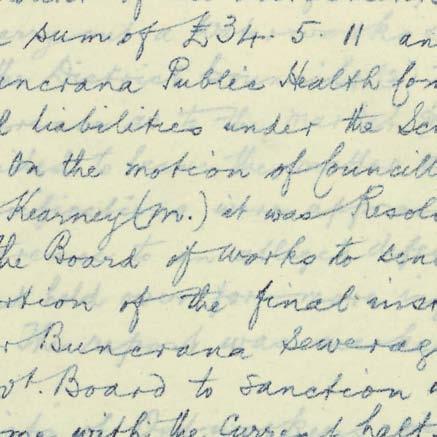 sum of £34. 5. 11 an
uncrana Public Health Com
liabilities under the Sc
On the motion of Councill
Kearney (M.) it was Resol
the Board of Works to sen
rtion of the final ins
r Buncrana Sewerag
vt. Board to sanction
with the Current half